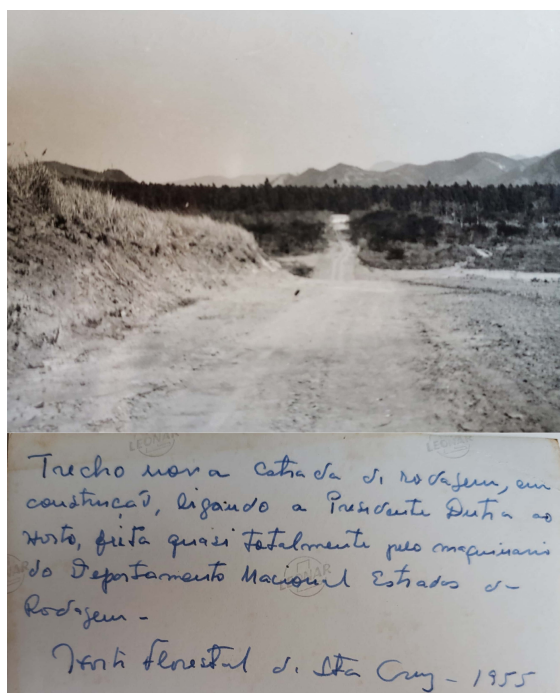 Trecho nova estrada di rodagem, em
construçaõ, ligando a Presidente Dutra ao
Horto, feita quasi totalmente pelo maquinario
do Departamento Nacional Estradas de
Rodagem -
Horto Florestal di Sta Cruz - 1955
LEONAR
LEONAR